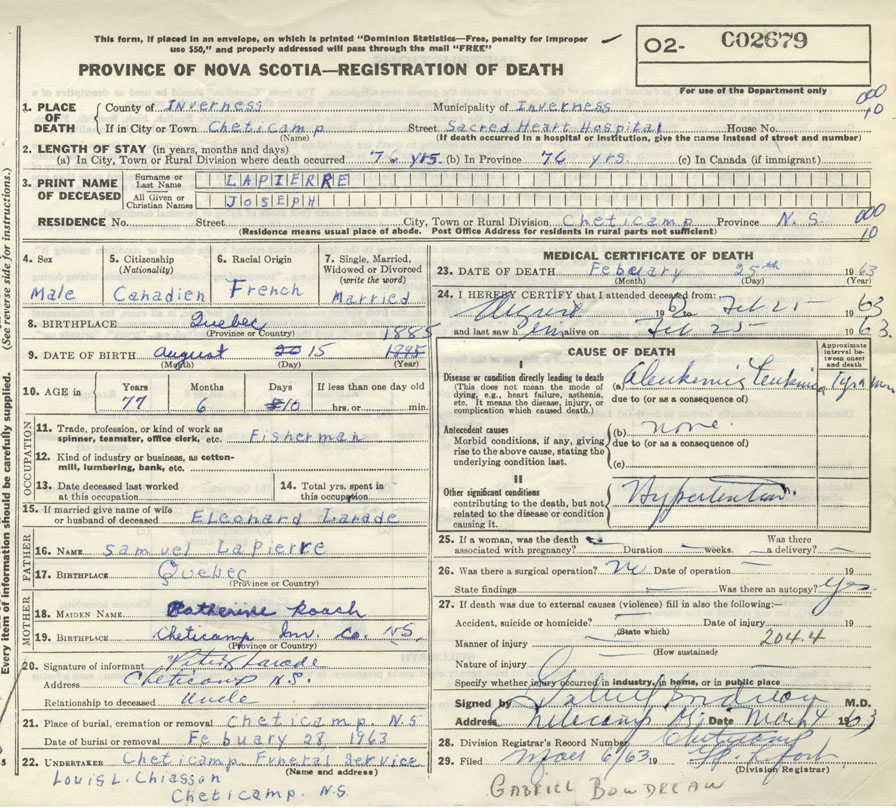 This form, if placed in an envelope, on which is printed "Dominion Statistics—Free, penalty for improper
use $50," and properly addressed will pass through the mail "FREE"
PROVINCE OF NOVA SCOTIA—REGISTRATION OF DEATH
02- C02679
For use of the Department only
000
10
1. PLACE OF DEATH
County of Inverness Municipality of Inverness
If in City or Town Cheticamp Street Sacred Heart Hospital House No.
(Name) (If death occurred in a hospital or institution, give the name instead of street and number)
2. LENGTH OF STAY (in years, months and days)
(a) In City, Town or Rural Division where death occurred 76 yrs. (b) In Province 76 yrs. (c) In Canada (if immigrant)
3. PRINT NAME OF DECEASED
Surname or Last Name LAPIERRE
All Given or Christian Names JOSEPH
RESIDENCE No. Street City, Town or Rural Division Cheticamp Province N.S.
(Residence means usual place of abode. Post Office Address for residents in rural parts not sufficient)
000
10
(See reverse side for instructions.)
Every item of information should be carefully supplied.
4. Sex Male
5. Citizenship (Nationality) Canadien
6. Racial Origin French
7. Single, Married, Widowed or Divorced (write the word) Married
8. BIRTHPLACE Quebec
(Province or Country)
1885
9. DATE OF BIRTH August 15
(Month) (Day) (Year)
10. AGE in Years 77 Months 6 Days 10 If less than one day old hrs. or min.
OCCUPATION
11. Trade, profession, or kind of work as spinner, teamster, office clerk, etc. Fisherman
12. Kind of industry or business, as cotton-mill, lumbering, bank, etc.
13. Date deceased last worked at this occupation
14. Total yrs. spent in this occupation
15. If married give name of wife or husband of deceased Eleonard Larade
FATHER
16. NAME Samuel LaPierre
17. BIRTHPLACE Quebec
(Province or Country)
MOTHER
18. MAIDEN NAME Catherine Roach
19. BIRTHPLACE Cheticamp Inv. Co. NS.
(Province or Country)
20. Signature of informant Larade
Address Cheticamp N.S.
Relationship to deceased Uncle
21. Place of burial, cremation or removal Cheticamp. N.S
Date of burial or removal Febuary 28, 1963
22. UNDERTAKER Cheticamp Funeral Service
(Name and address)
Louis L. Chiasson
Cheticamp. N.S.
MEDICAL CERTIFICATE OF DEATH
23. DATE OF DEATH Febuary 25th 1963
(Month) (Day) (Year)
24. I HEREBY CERTIFY that I attended deceased from:
August 1962 to Feb 25 1963
and last saw h im alive on Feb 25 1963.
CAUSE OF DEATH
Approximate interval between onset and death
I
Disease or condition directly leading to death
(This does not mean the mode of dying, e.g., heart failure, asthenia, etc. It means the disease, injury, or complication which caused death.)
(a) Aleukemic Leukemia
due to (or as a consequence of)
Antecedent causes
Morbid conditions, if any, giving rise to the above cause, stating the underlying condition last.
(b) none.
due to (or as a consequence of)
(c)
II
Other significant conditions
contributing to the death, but not related to the disease or condition causing it.
Hypertention.
25. If a woman, was the death associated with pregnancy? Duration weeks. Was there a delivery?
26. Was there a surgical operation? no Date of operation 19
State findings Was there an autopsy? yes
27. If death was due to external causes (violence) fill in also the following:—
Accident, suicide or homicide? Date of injury 19
(State which)
Manner of injury 204.4
(How sustained)
Nature of injury
Specify whether injury occurred in industry, in home, or in public place
Signed by Gabriel Boudreau M.D.
Address Cheticamp NS. Date Mar 4 1963
28. Division Registrar's Record Number Cheticamp
29. Filed Mar 6/63 19
(Division Registrar)
GABRIEL BOWDREAW